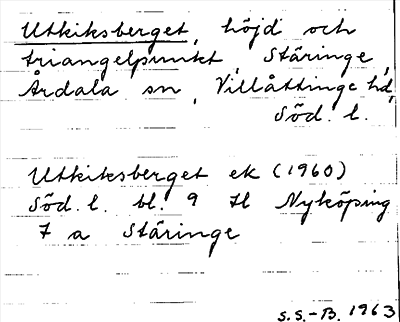 Utkiksberget, höjd och
triangelpunkt, Stäringe,
Årdala sn, Villåttinge hd,
Söd. l.
Utkiksberget ek (1960)
Söd. l. bl. 9 H Nyköping
7 a Stäringe
S.S.-B. 1963